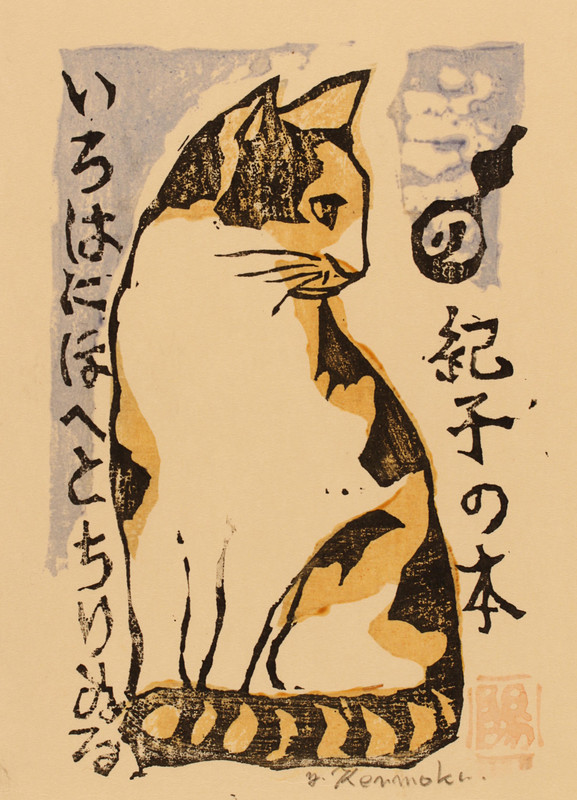 の
紀子の本
いろはにほへとちりぬる
陽
y. Kenmoku.